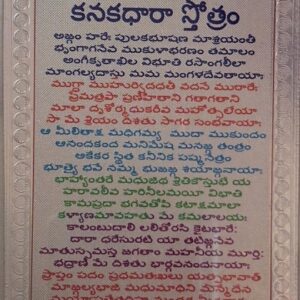 కనకధారా స్తోత్రం
అఙ్గం హరేః పులకభూషణ మాశ్రయంతీ
భృంగాగనేవ ముకుళాభరణం తమాలం
అంగీకృతాఖిల విభూతి రపాంగలీలా
మాంగల్యదాస్తు మమ మంగళదేవతాయాః
ముగ్ధా ముహుర్విదధతీ వదనే మురారేః
ప్రేమత్రపా ప్రణిహితాని గతాగతాని
మాలా దృశోర్మధుకరీవ మహోత్పలేయా
సా మే శ్రియం దిశతు సాగర సంభవాయాః
ఆ మీలితాక్ష మధిగమ్య ముదా ముకుందం
ఆనందకంద మనిమేష మనఙ్గ తంత్రం
ఆకేకర స్థిత కనీనిక పక్ష్మనేత్రం
భూత్యై భవ న్మమ భుజఙ్గ శయాఙ్గనాయాః
బాహ్యాంతరే మధుజితః శ్రితకౌస్తుభే య
హారావళీవ హరినీలమయీ విభాతి
కామప్రదా భగవతోపి కటాక్షమాలా
కళ్యాణమావహతు మే కమలాలయాః
కాలంబుదాళి లలితోరసి కైటభారేః
ధారా ధరేస్ఫురతి యా తటిదఙ్గనేవ
మాతుస్సమస్త జగతాం మహనీయ మూర్తిః
భద్రాణి మే దిశతు భార్గవనందనాయాః
ప్రాప్తం పదం ప్రథమతఃఖలు యత్ప్రభావాత్
మాఙ్గల్యభాజి మధుమాధిని మన్మథేన